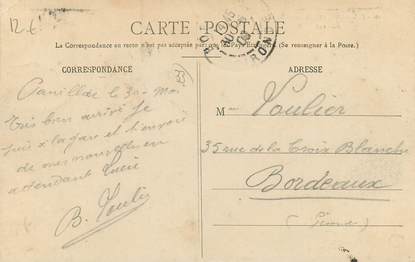 12.6
CARTE POSTALE
La Correspondance au recto n'est pas acceptée par tous les Pays Etrangers. (Se renseigner à la Poste.)
CORRESPONDANCE
ADRESSE
33
le 30 Mai
Très bien arrivé Je
suis à la gare et t'envoi
de mes nouvelles en
attendant
B. Voulier
M Voulier
35 rue de la Croix Blanche
Bordeaux
(Gironde)